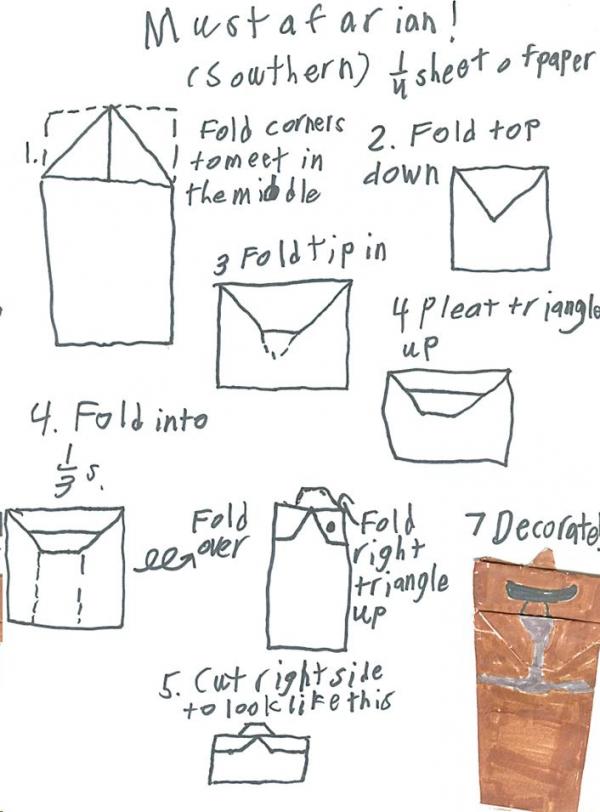 Mustafarian!
(Southern) 1/4 sheet of paper
1.
Fold corners
to meet in
the middle
2. Fold top
down
3 Fold tip in
4 Pleat triangle
up
4. Fold into
1/3 s.
Fold
over
Fold
right
triangle
up
5. Cut right side
to look like this
7 Decorate!